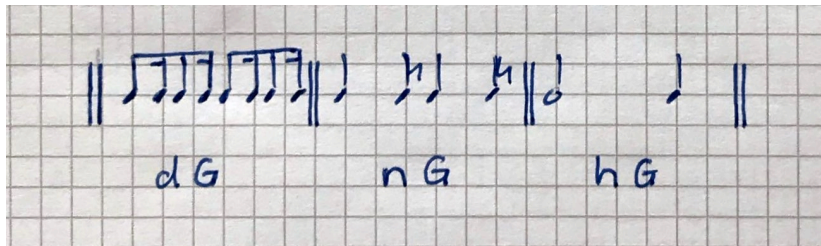 dG nG hG